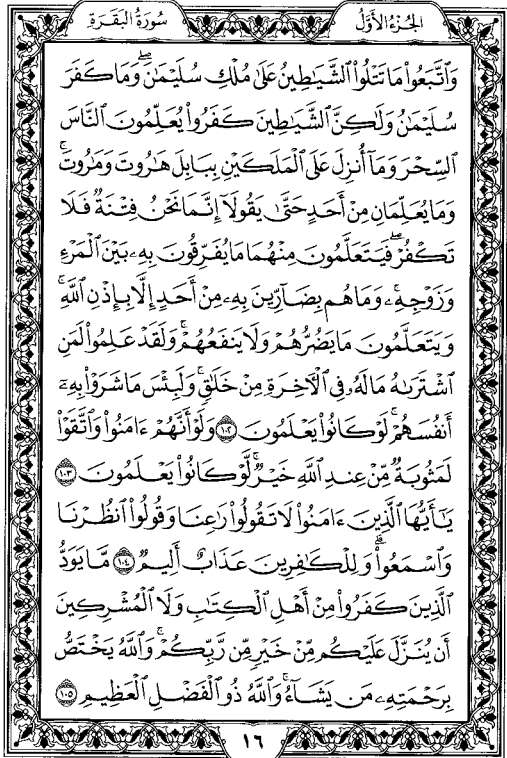 الجزء الأول
سورة البقرة
وَٱتَّبَعُوا۟ مَا تَتْلُوا۟ ٱلشَّيَـٰطِينُ عَلَىٰ مُلْكِ سُلَيْمَـٰنَ ۖ وَمَا كَفَرَ
سُلَيْمَـٰنُ وَلَـٰكِنَّ ٱلشَّيَـٰطِينَ كَفَرُوا۟ يُعَلِّمُونَ ٱلنَّاسَ
ٱلسِّحْرَ وَمَآ أُنزِلَ عَلَى ٱلْمَلَكَيْنِ بِبَابِلَ هَـٰرُوتَ وَمَـٰرُوتَ ۚ
وَمَا يُعَلِّمَانِ مِنْ أَحَدٍ حَتَّىٰ يَقُولَآ إِنَّمَا نَحْنُ فِتْنَةٌ فَلَا
تَكْفُرْ ۖ فَيَتَعَلَّمُونَ مِنْهُمَا مَا يُفَرِّقُونَ بِهِۦ بَيْنَ ٱلْمَرْءِ
وَزَوْجِهِۦ ۚ وَمَا هُم بِضَآرِّينَ بِهِۦ مِنْ أَحَدٍ إِلَّا بِإِذْنِ ٱللَّهِ ۚ
وَيَتَعَلَّمُونَ مَا يَضُرُّهُمْ وَلَا يَنفَعُهُمْ ۚ وَلَقَدْ عَلِمُوا۟ لَمَنِ
ٱشْتَرَىٰهُ مَا لَهُۥ فِى ٱلْـَٔاخِرَةِ مِنْ خَلَـٰقٍ ۚ وَلَبِئْسَ مَا شَرَوْا۟ بِهِۦٓ
أَنفُسَهُمْ ۚ لَوْ كَانُوا۟ يَعْلَمُونَ ١٠٢ وَلَوْ أَنَّهُمْ ءَامَنُوا۟ وَٱتَّقَوْا۟
لَمَثُوبَةٌ مِّنْ عِندِ ٱللَّهِ خَيْرٌ ۖ لَّوْ كَانُوا۟ يَعْلَمُونَ ١٠٣
يَـٰٓأَيُّهَا ٱلَّذِينَ ءَامَنُوا۟ لَا تَقُولُوا۟ رَٰعِنَا وَقُولُوا۟ ٱنظُرْنَا
وَٱسْمَعُوا۟ ۗ وَلِلْكَـٰفِرِينَ عَذَابٌ أَلِيمٌ ١٠٤ مَّا يَوَدُّ
ٱلَّذِينَ كَفَرُوا۟ مِنْ أَهْلِ ٱلْكِتَـٰبِ وَلَا ٱلْمُشْرِكِينَ
أَن يُنَزَّلَ عَلَيْكُم مِّنْ خَيْرٍ مِّن رَّبِّكُمْ ۗ وَٱللَّهُ يَخْتَصُّ
بِرَحْمَتِهِۦ مَن يَشَآءُ ۚ وَٱللَّهُ ذُو ٱلْفَضْلِ ٱلْعَظِيمِ ١٠٥
١٦